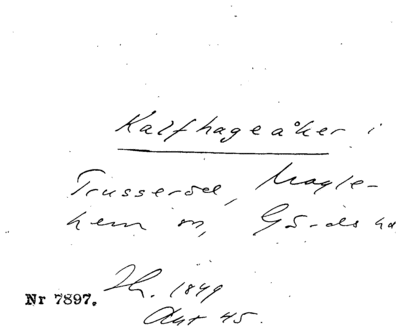 Kalfhageåker i
Trusseröd, Magle-
hem sn, Gärds hd
Nr 7897.
1849
Akt 45.